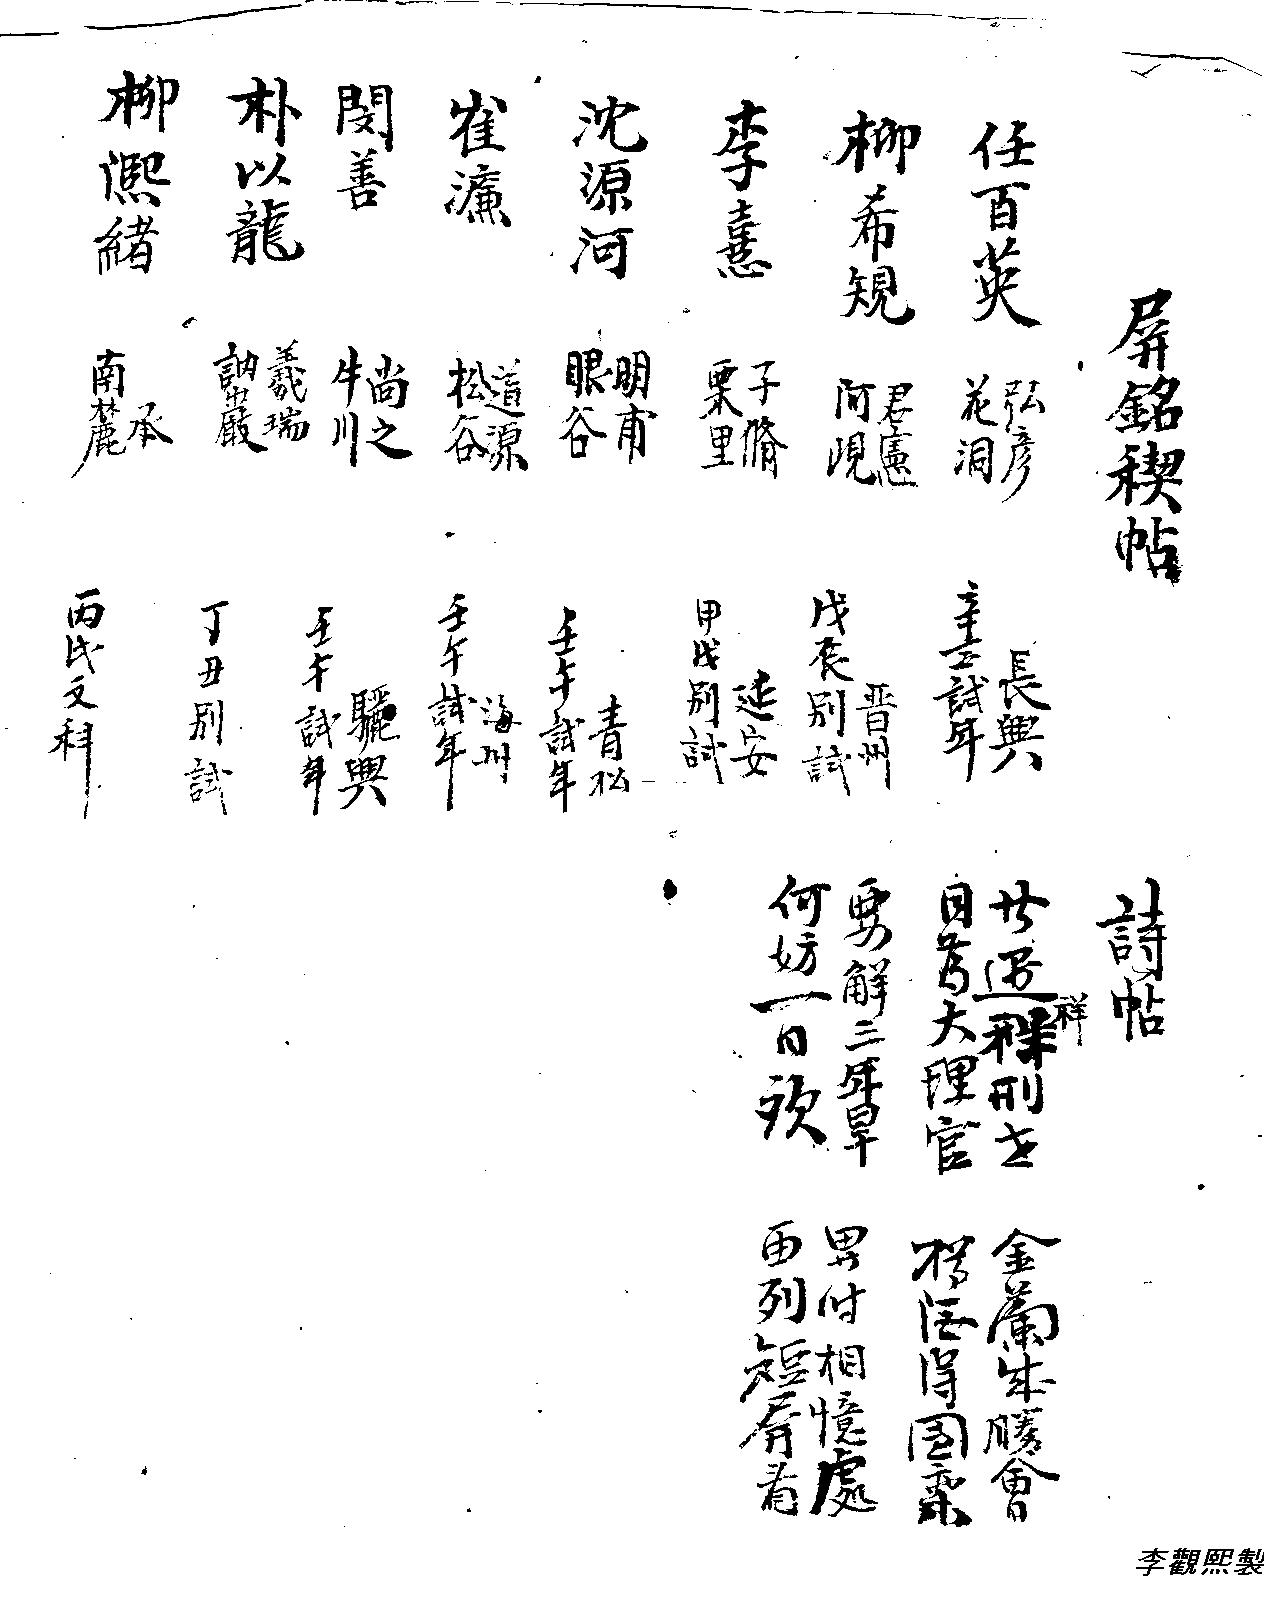 屛銘稧帖
任百英
弘彦
花洞
長興
辛壬試年
柳希規
君憲
阿峴
晋州
戊辰別試
李憙
子脩
栗里
延安
甲戌別試
沈源河
明甫
眼谷
青松
壬午試年
崔濂
道源
松谷
海州
壬午試年
閔善
尚之
牛川
驪興
壬午試年
朴以龍
羲瑞
訥巖
丁丑別試
柳凞緒
承
南麓
丙戌文科
詩帖
廿遇祥刑世
祥
同爲大理官
要解三年旱
何妨一日歡
金蘭成勝會
樽酒得團欒
異时相憶處
西列短屛看
李觀熙製